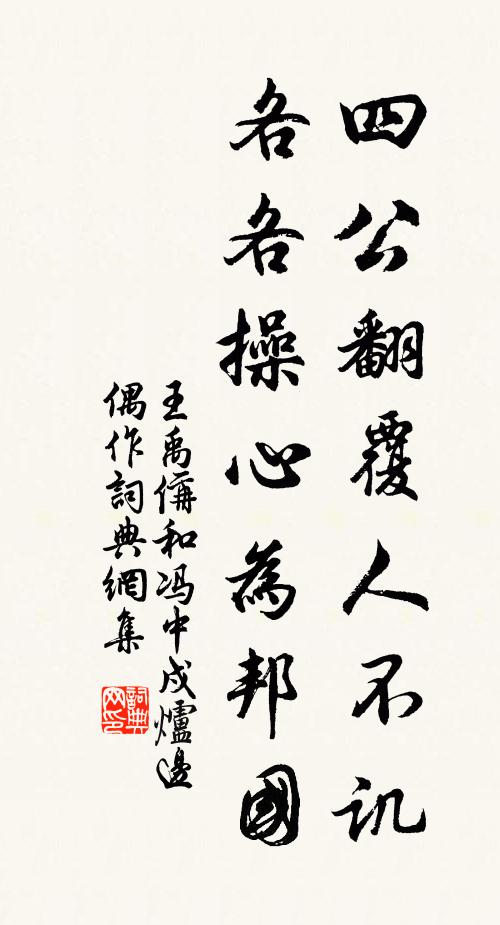 四公翻覆人不訊
各各操心為邦國
王禹偁和馮中戌爐邊
偶作詞典網集
詞典网印